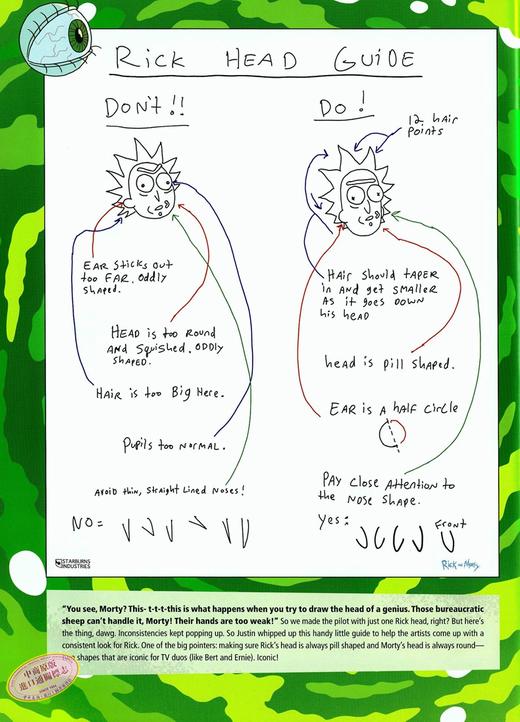 Rick Head Guide
Don't!!
Do!
12 hair
points
Ear sticks out
too far. oddly
shaped.
Head is too round
and squished. oddly
shaped.
Hair is too big here.
Pupils too normal.
Avoid thin, straight lined noses!
No=
Hair should taper
in and get smaller
as it goes down
his head
head is pill shaped.
Ear is a half circle
Pay close attention to
the nose shape.
Yes:
Front
STARBURNS
INDUSTRIES
Rick and Morty
"You see, Morty? This- t-t-t-this is what happens when you try to draw the head of a genius. Those bureaucratic
sheep can't handle it, Morty! Their hands are too weak!" So we made the pilot with just one Rick head, right? But here's
the thing, dawg. Inconsistencies kept popping up. So Justin whipped up this handy little guide to help the artists come up with a
consistent look for Rick. One of the big pointers: making sure Rick's head is always pill shaped and Morty's head is always round—
shapes that are iconic for TV duos (like Bert and Ernie). Iconic!